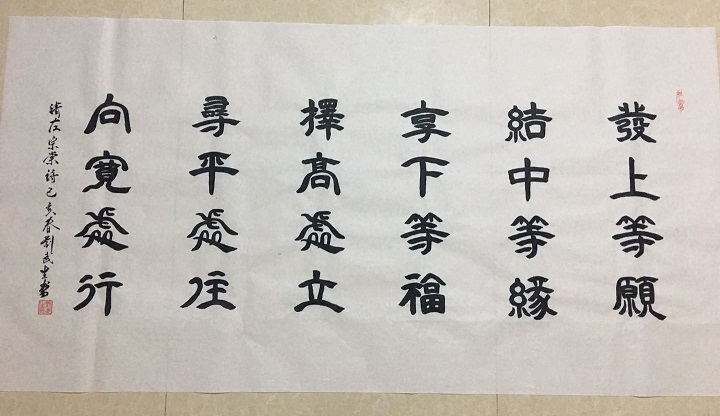 發上等願
結中等緣
享下等福
擇高處立
尋平處住
向寬處行
清左宗棠詩己亥春劉武生書